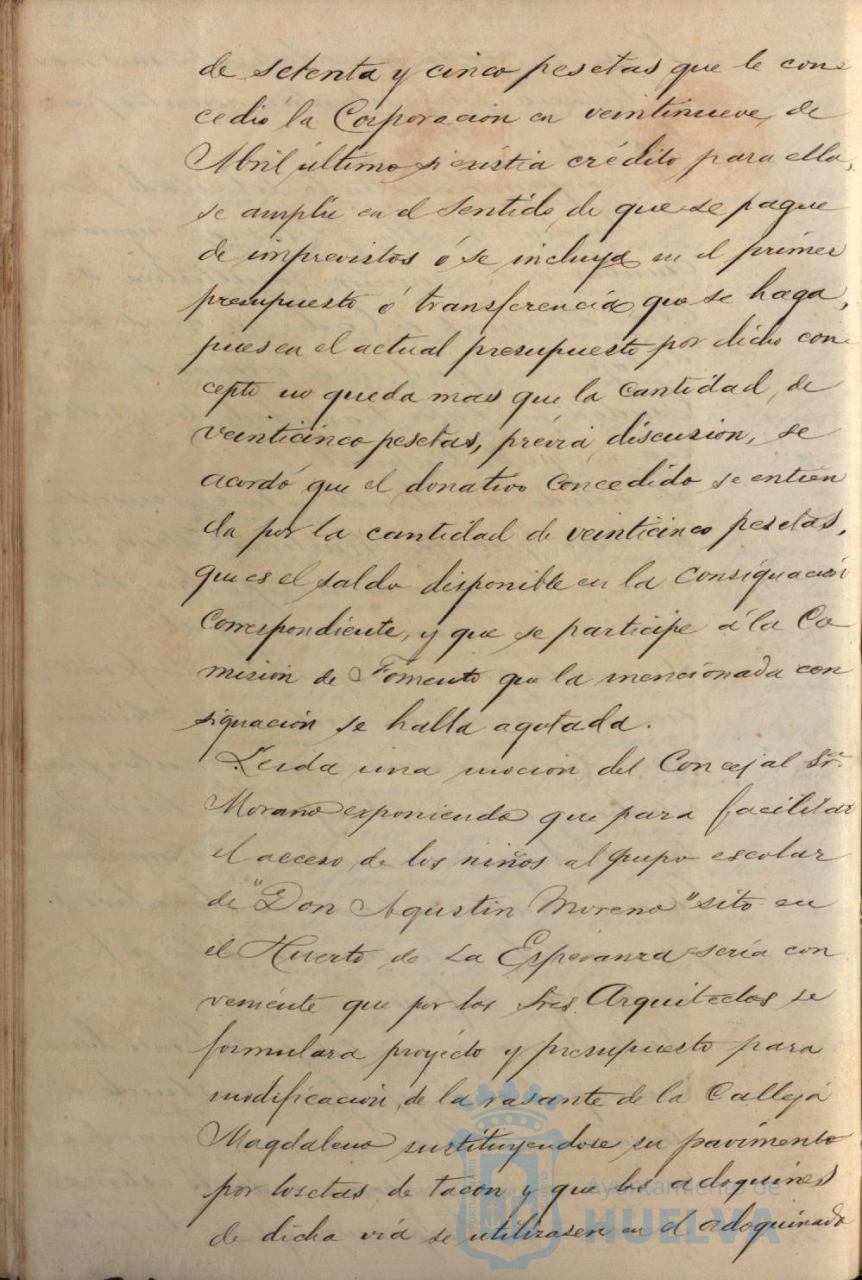 de setenta y cinco pesetas que le con-
cedió la Corporación en veintinueve de
Abril último si existia crédito para ella,
se amplíe en el sentido de que se pague
de imprevistos ó se incluya en el primer
presupuesto ó transferencia que se haga,
pues en el actual presupuesto por dicho con-
cepto no queda mas que la cantidad de
veinticinco pesetas, prévia discusion, se
acordó que el donativo concedido se entien
da por la cantidad de veinticinco pesetas,
que es el saldo disponible en la consignación
correspondiente, y que se participe á la Co
misión de Fomento que la mencionada con
signación se halla agotada.
Leida una mocion del Concejal Sr.
Morano exponiendo que para facilitar
el acceso de los niños al grupo escolar
de "Don Agustin Moreno" sito en
el Huerto de La Esperanza sería con
veniente que por los Sres. Arquitectos se
formulara proyecto y presupuesto para
modificación de la rasante de la Calleja
Magdalena sustituyendose su pavimento
por losetas de tacón y que los adoquines
de dicha vía se utilizasen en el adoquinado
Ayuntamiento de
HUELVA